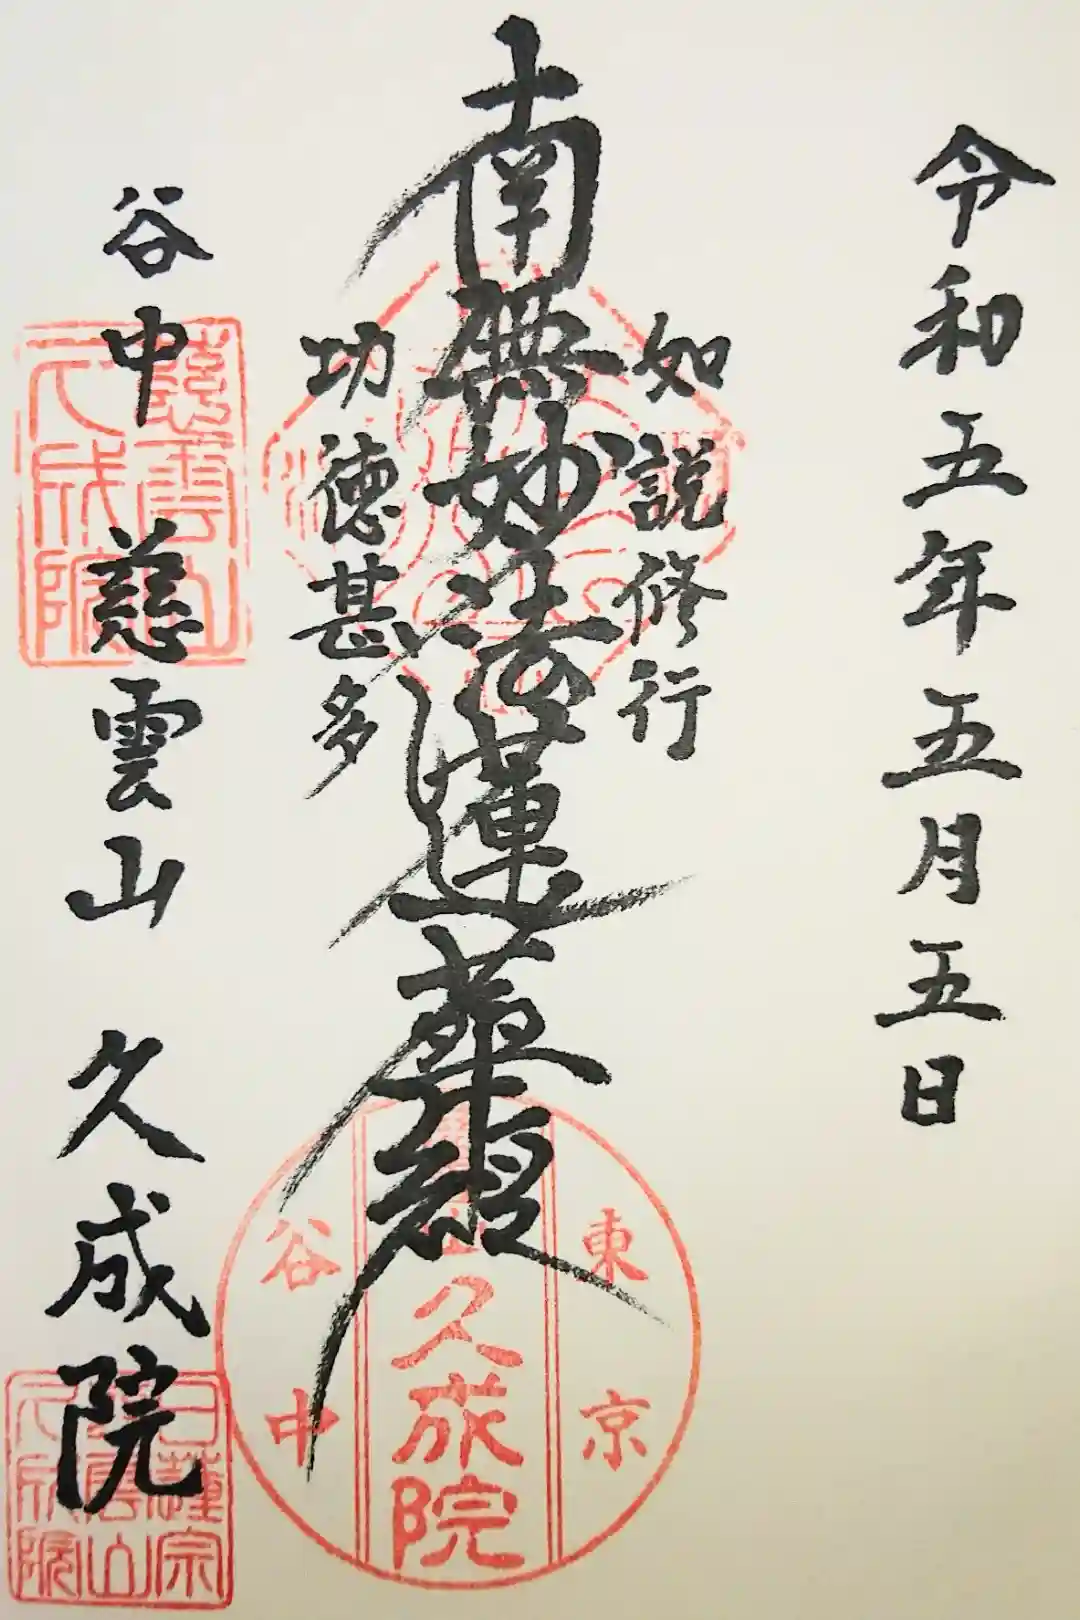 令和五年五月五日
如説修行
南無妙法蓮華経
功徳甚多
谷中 慈雲山 久成院
慈雲山
久成院
東京
久成院
谷中
日蓮宗
慈雲山
久成院